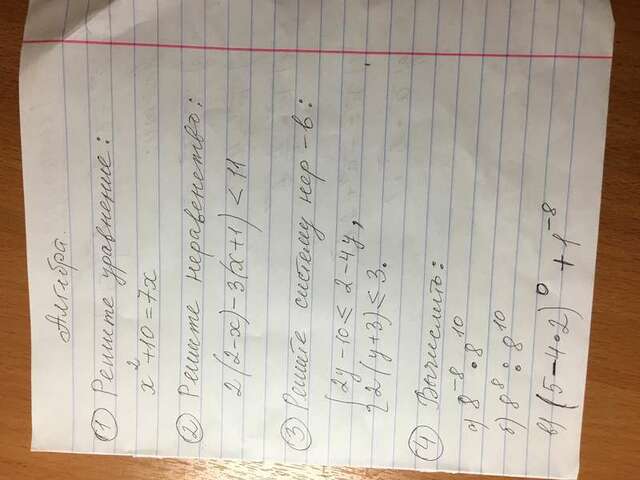 Алгебра.
① Решите уравнение:
x² + 10 = 7x
② Решите неравенство:
2(2-x) - 3(x+1) < 11
③ Решите систему нер-в:
{ 2y - 10 ≤ 2 - 4y,
2(y+3) ≤ 3.
④ Вычислить:
а) 8⁻⁸ · 8¹⁰
б) 8⁸ : 8¹⁰
в) (5 - 4·2)⁰ + 1⁻⁸